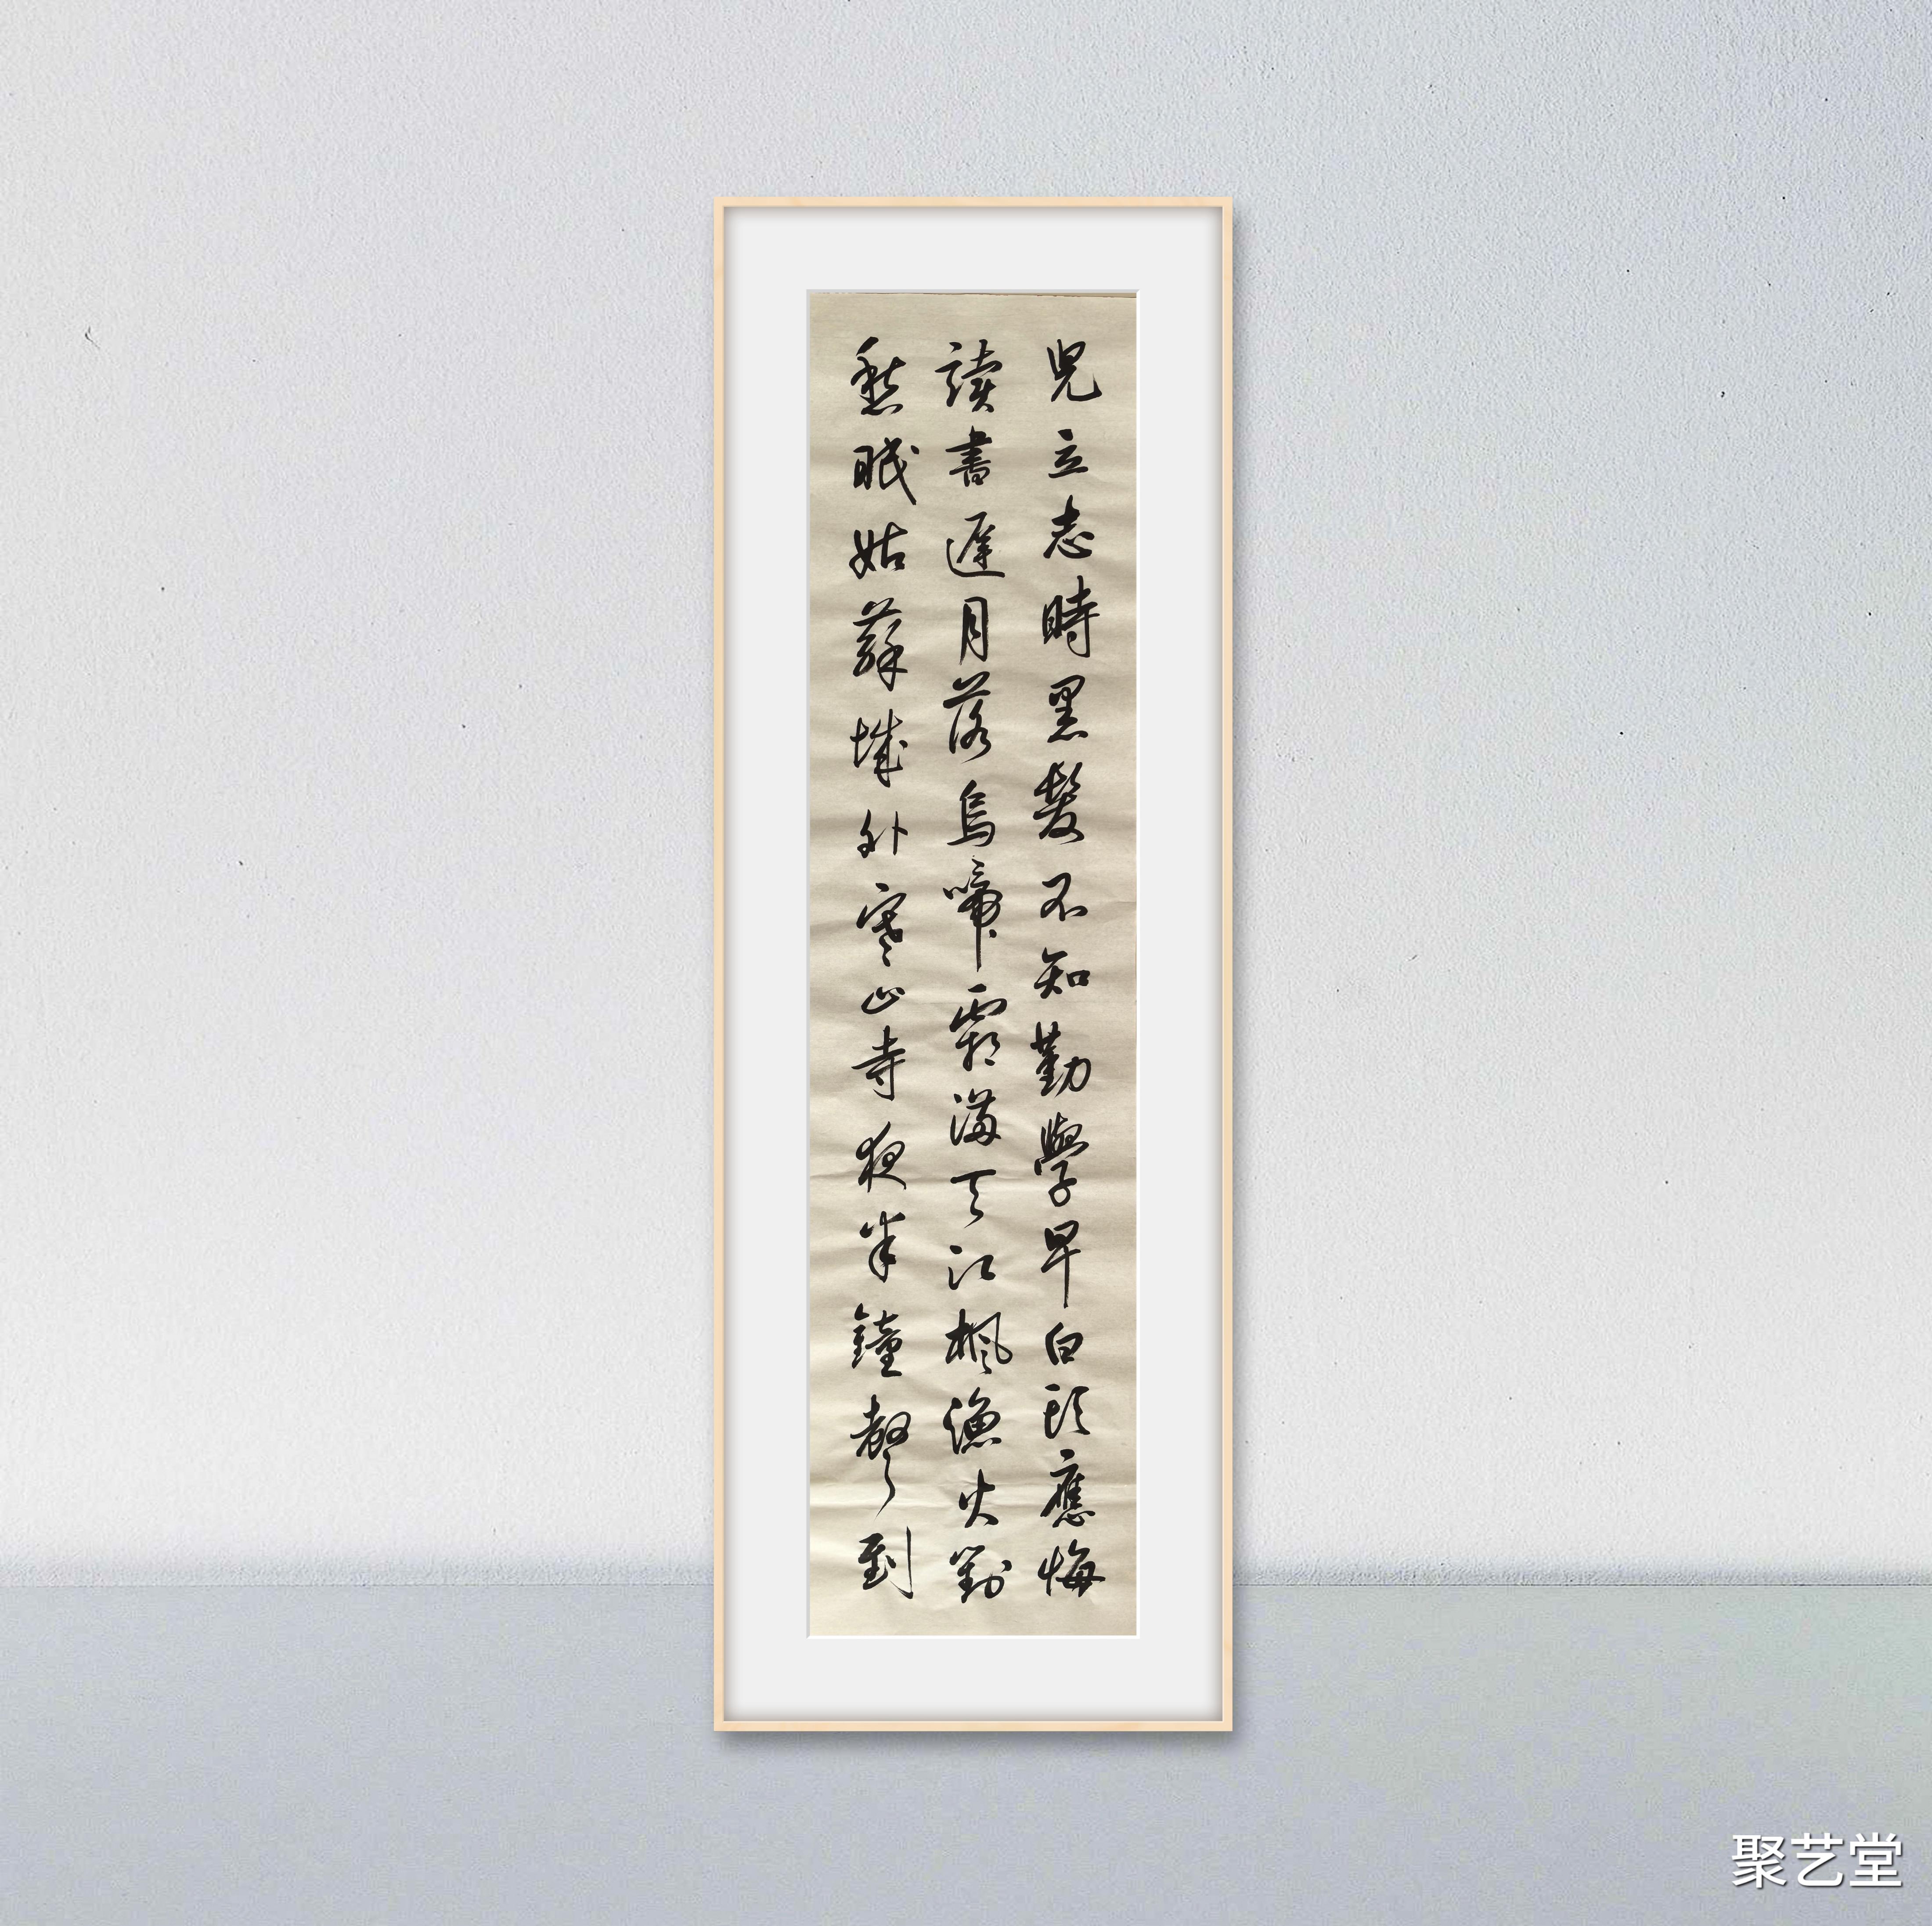 児立志時黑髮不知勤學早白頭應悔
讀書遲月落烏啼霜滿天江楓漁火對
愁眠姑蘇城外寒山寺夜半鐘聲到
聚艺堂